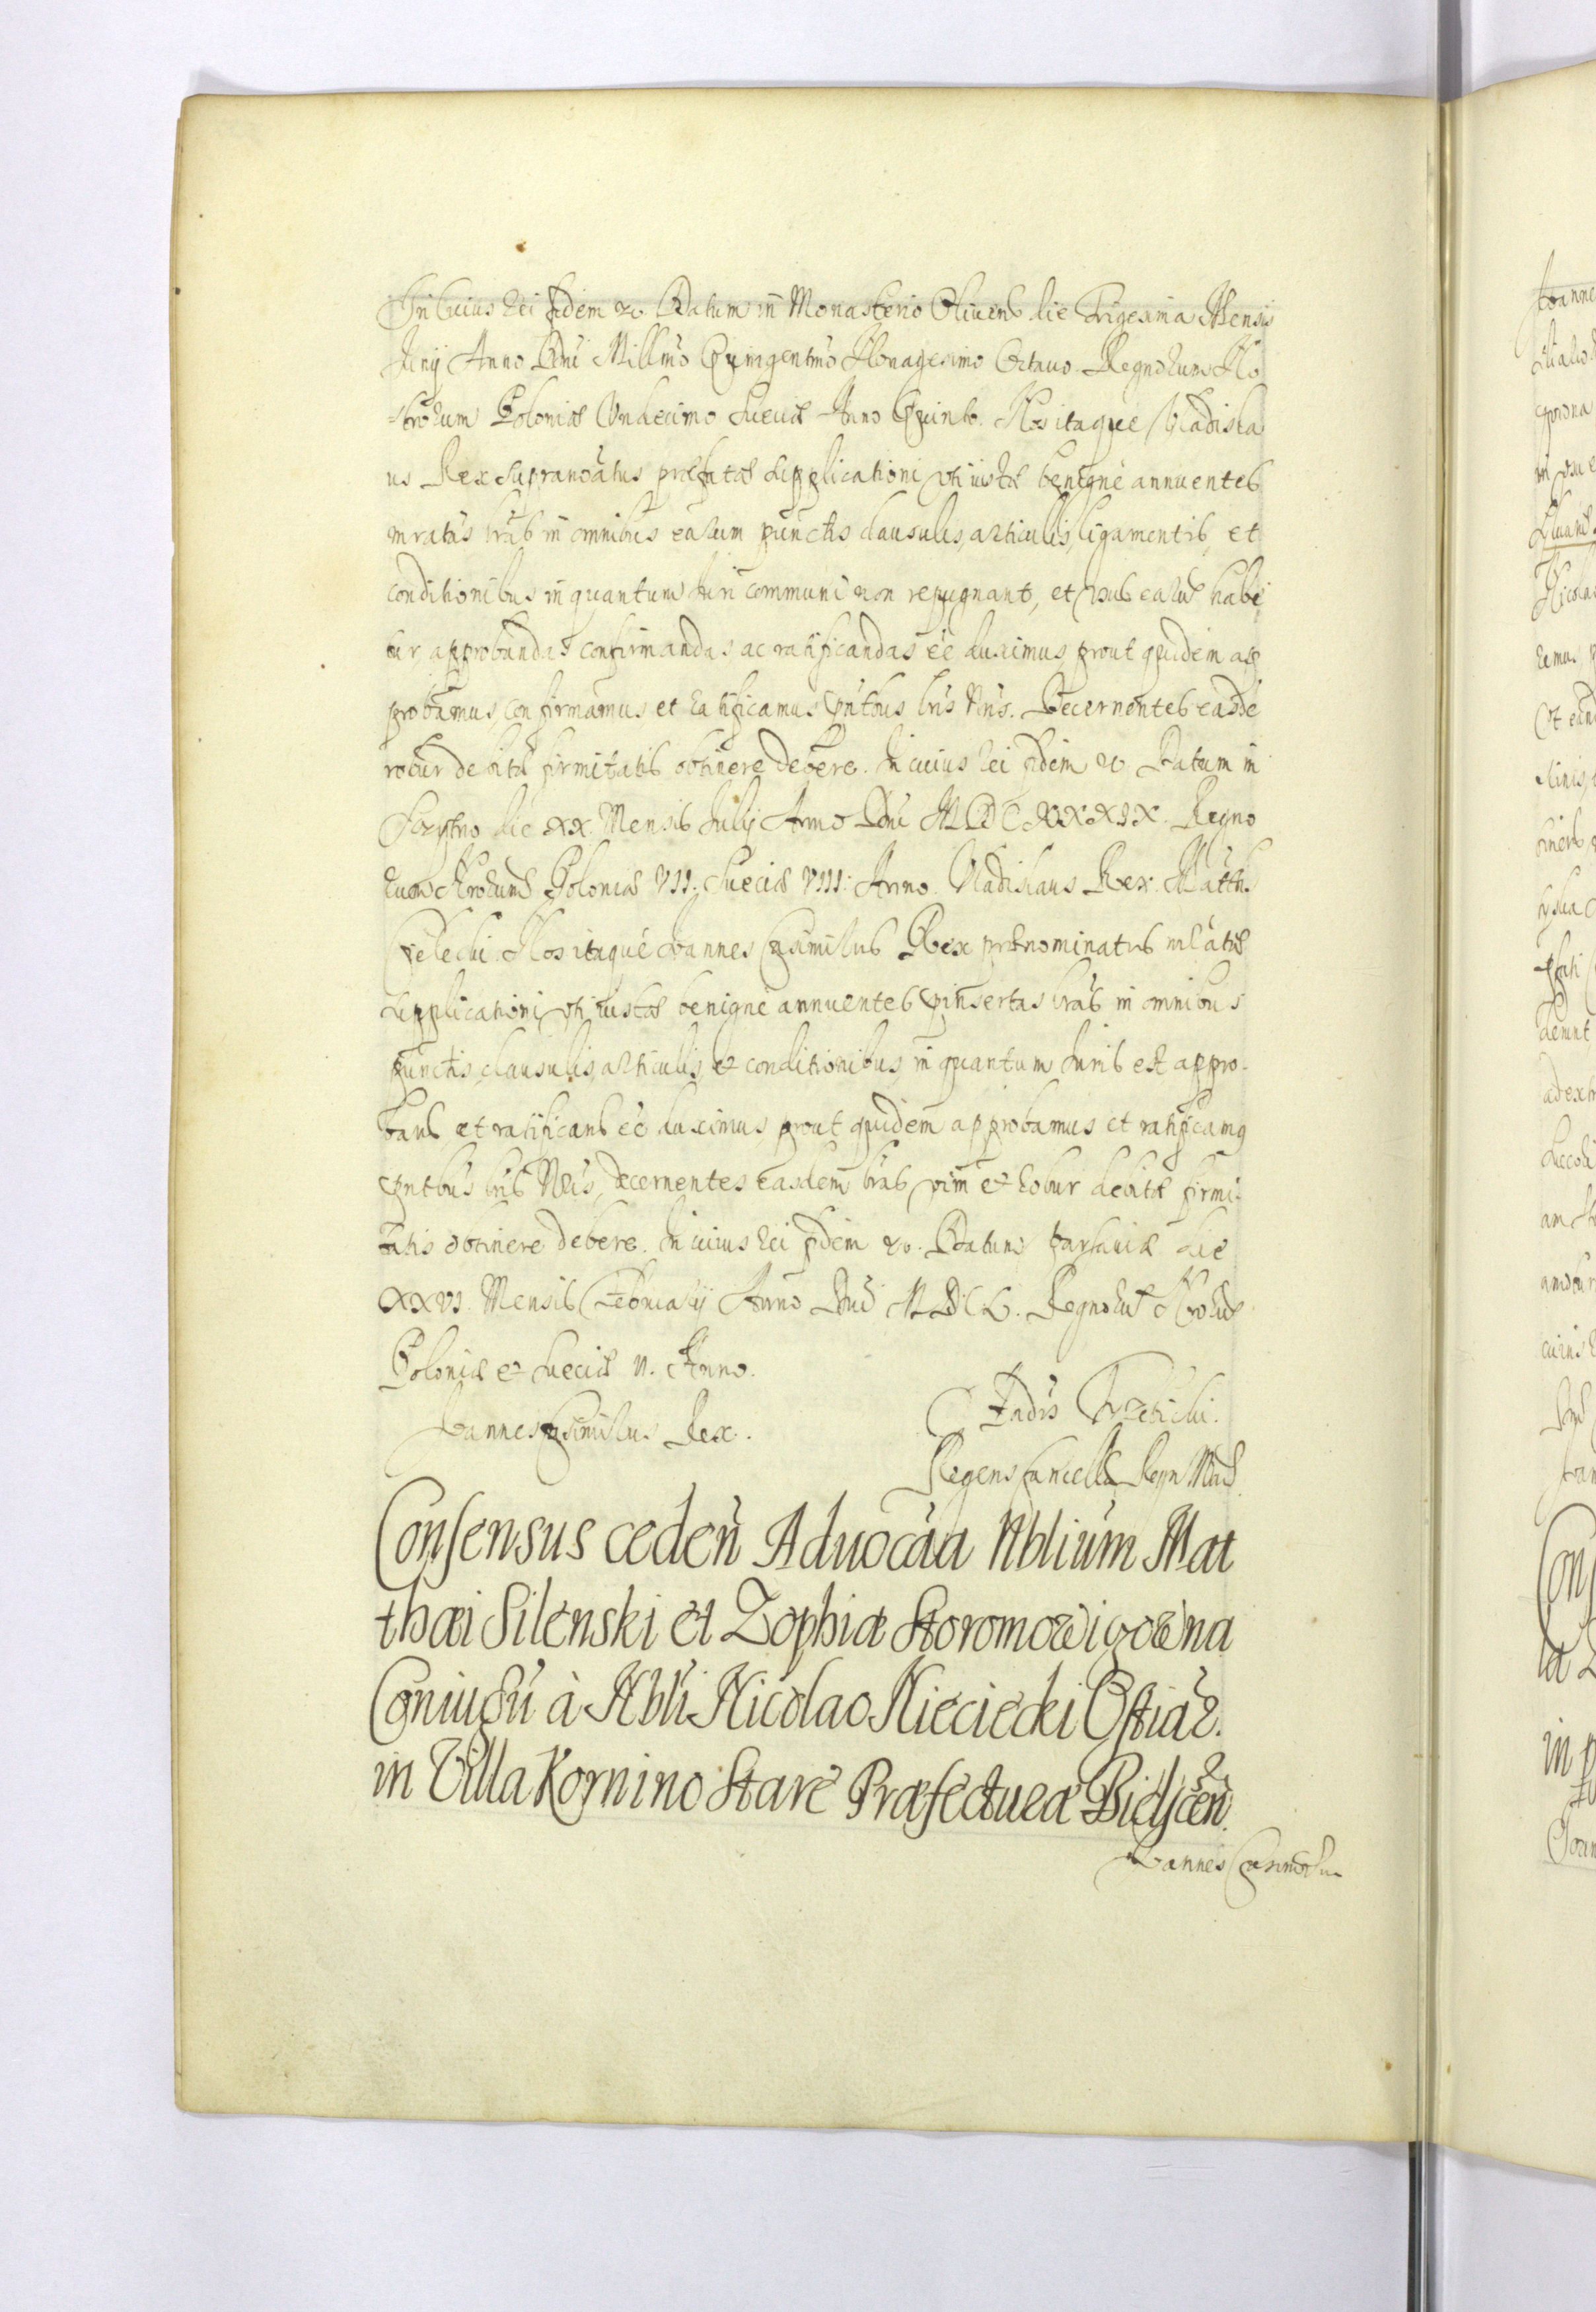 In Cuius rei fidem &c. Datum in Monasterio Oliuens die Trigesima Mensis
Junij Anno Dni Millmo Quingentmo Nonagesimo Octauo. Regnorum No
strorum Poloniæ Undecimo Sueciæ Anno Quinto. Nos itaque Vladisla
us Rex supranoatus præfatæ supplicationi vti iustæ benigne annuentes
insratas lras in omnibus earum punctis clausulis, articulis, ligamentis, et
conditionibus in quantum Juri communi non repugnant, et vsus earum habe
tur approbandas confirmandas ac ratificandas eē duximus, prout quidem ap
probamus, confirmamus et ratificamus pntbus lris Nris. Decernentes easdē
robur debitæ firmitatis obtinere debere. In cuius rei fidem &c Datum in
die XX. Mensis Julij Anno Dni MDCXXXIX. Regno
rum Nrorum Poloniæ VII. Sueciæ VIII. Anno. Vladislaus Rex. Matth.
Nos itaque Joannes Casimirus Rex prænominatus
supplicationi vti iustæ benigne annuentes insertas lras in omnibus
punctis clausulis, articulis, & conditionibus, in quantum Juris est appro-
bans et ratificans eē duximus, prout quidem approbamus et ratificamq
pntbus lris Nris, decernentes easdem lras vim & robur debitæ firmi-
tatis obtinere debere. In cuius rei fidem &c. Datum Varsauiæ die
XXVI. Mensis Februarij Anno Dni MDCL. Regnorum Nrorum
Poloniæ & Sueciæ II. Anno.
Joannes Casimirus Rex.
Regens Cancellæ Regn
Consensus ceden Aduocaa Nblium Mat
thæi Silenski et Zophiæ Storomowizowna
Coniugu à Nbli Nicolao Nieciecki Ostiar.
in Villa Kornino Stare Præfecturæ Bielscen.
Joannes Casimirus